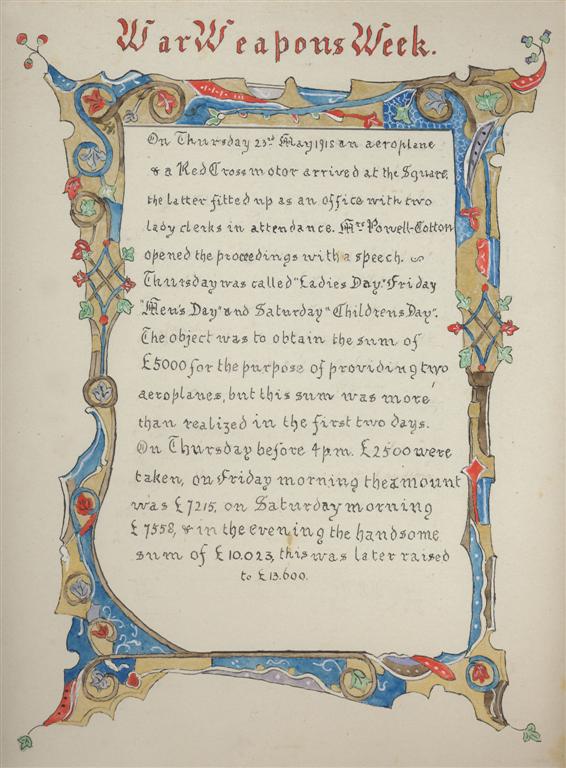 War Weapons Week.
On Thursday 23rd May 1918 an aeroplane
& a Red Cross motor arrived at the Square,
the latter fitted up as an office with two
lady clerks in attendance. Mrs Powell-Cotton
opened the proceedings with a speech.
Thursday was called "Ladies Day," Friday
"Men's Day" and Saturday "Childrens Day".
The object was to obtain the sum of
£5000 for the purpose of providing two
aeroplanes, but this sum was more
than realized in the first two days.
On Thursday before 4 p.m. £2500 were
taken, on Friday morning the amount
was £7215, on Saturday morning
£7558, & in the evening the handsome
sum of £10.023, this was later raised
to £13.600.